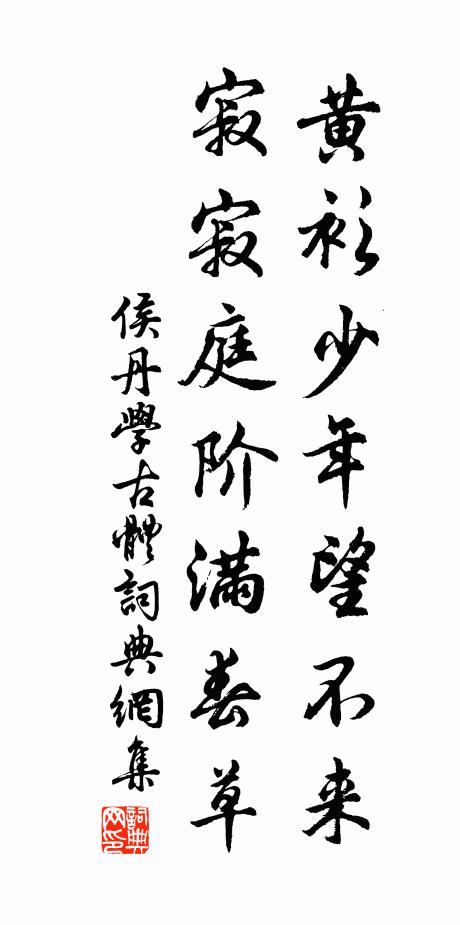 黄衫少年望不来
寂寂庭阶满春草
侯丹學古體詞典網集
詞典网印